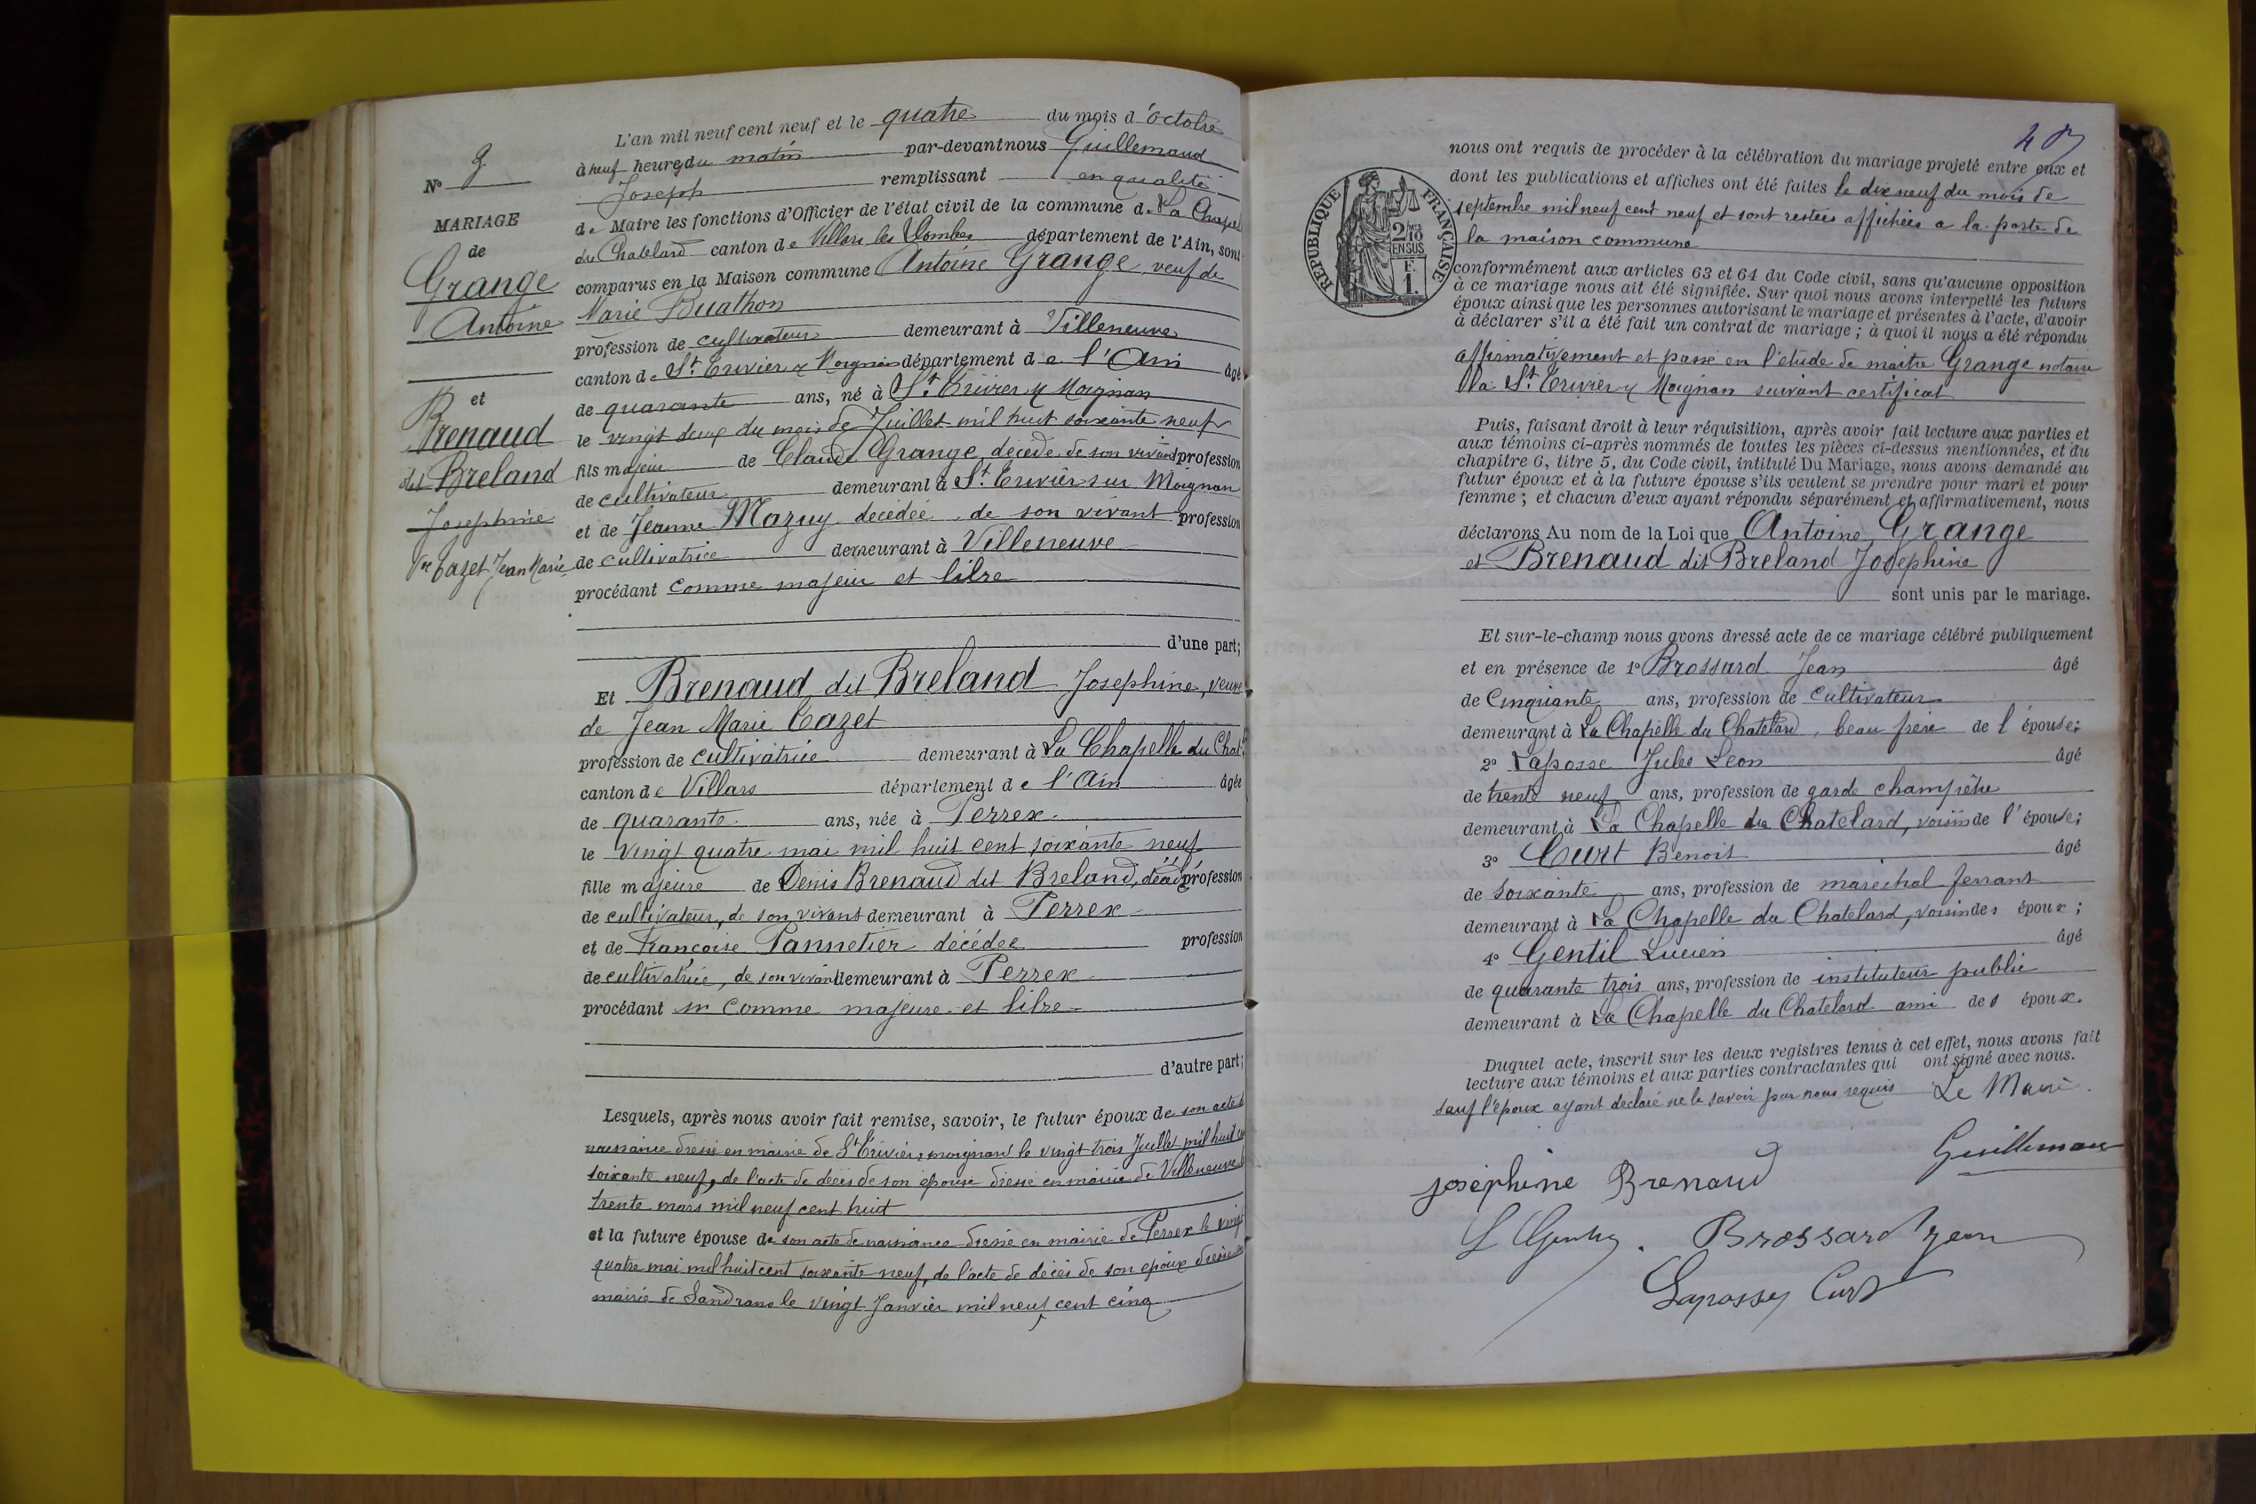 L'an mil neuf cent neuf et le quatre du mois d'octobre
à neuf heures du matin par-devant nous Guillemaud
Joseph remplissant en qualité
de Maire les fonctions d'Officier de l'état civil de la commune de La Chapel
du Chatelard canton de Villars les Dombes département de l'Ain, sont
comparus en la Maison commune Antoine Grange, veuf de
Marie Buathon
profession de cultivateur demeurant à Villeneuve
canton de St Trivier s/ Moignans département de l'Ain âgé
de quarante ans, né à St Trivier s/ Moignan
le vingt deux du mois de Juillet mil huit soixante neuf
fils majeur de Claude Grange, décédé de son vivant profession
de cultivateur demeurant à St Trivier sur Moignan
et de Jeanne Mazuy décédée de son vivant profession
de cultivatrice demeurant à Villeneuve
procédant comme majeur et libre
d'une part;
Et Brenaud dit Breland Josephine, veuve
de Jean Marie Cazet
profession de cultivatrice demeurant à La Chapelle du Chat.
canton de Villars département de l'Ain âgée
de quarante ans, née à Perrex
le vingt quatre mai mil huit cent soixante neuf
fille majeure de Denis Brenaud dit Breland, décédé profession
de cultivateur, de son vivant demeurant à Perrex
et de Françoise Pannetier décédée profession
de cultivatrice, de son vivant demeurant à Perrex
procédant comme majeure et libre
d'autre part;
Lesquels, après nous avoir fait remise, savoir, le futur époux de son acte de
naissance dressé en mairie de St Trivier s moignand le vingt trois Juillet mil huit cent
soixante neuf, de l'acte de décès de son épouse dressé en mairie de Villeneuve
trente mars mil neuf cent huit
et la future épouse de son acte de naissance dressé en mairie de Perrex le vingt
quatre mai mil huit cent soixante neuf, de l'acte de décès de son époux dressé en
mairie de Sandrans le vingt Janvier mil neuf cent cinq
N° 9
MARIAGE
de
Grange
Antoine
et
Brenaud
dit Breland
Josephine
Vve Cazet Jean Marie
REPUBLIQUE FRANÇAISE
2/10
EN SUS
F.
1.
nous ont requis de procéder à la célébration du mariage projeté entre eux et
dont les publications et affiches ont été faites le dix neuf du mois de
septembre mil neuf cent neuf et sont restées affichées a la porte de
la maison commune
conformément aux articles 63 et 64 du Code civil, sans qu'aucune opposition
à ce mariage nous ait été signifiée. Sur quoi nous avons interpellé les futurs
époux ainsi que les personnes autorisant le mariage et présentes à l'acte, d'avoir
à déclarer s'il a été fait un contrat de mariage ; à quoi il nous a été répondu
affirmativement et passé en l'étude de maitre Grange notaire
à St Trivier s/ Moignan suivant certificat
Puis, faisant droit à leur réquisition, après avoir fait lecture aux parties et
aux témoins ci-après nommés de toutes les pièces ci-dessus mentionnées, et du
chapitre 6, titre 5, du Code civil, intitulé Du Mariage, nous avons demandé au
futur époux et à la future épouse s'ils veulent se prendre pour mari et pour
femme ; et chacun d'eux ayant répondu séparément et affirmativement, nous
déclarons Au nom de la Loi que Antoine Grange
et Brenaud dit Breland Josephine
sont unis par le mariage.
Et sur-le-champ nous avons dressé acte de ce mariage célébré publiquement
et en présence de 1° Brossard Jean âgé
de Cinquante ans, profession de cultivateur
demeurant à La Chapelle du Chatelard, beau frère de l'épouse;
2° Laposse Jules Leon âgé
de trente neuf ans, profession de garde champêtre
demeurant à La Chapelle du Chatelard, voisin de l'épouse;
3° Curt Benoit âgé
de soixante ans, profession de marechal ferrant
demeurant à La Chapelle du Chatelard, voisin des époux;
4° Gentil Lucien âgé
de quarante trois ans, profession de instituteur public
demeurant à La Chapelle du Chatelard ami des époux.
Duquel acte, inscrit sur les deux registres tenus à cet effet, nous avons fait
lecture aux témoins et aux parties contractantes qui ont signé avec nous.
sauf l'époux ayant déclaré ne le savoir par nous requis Le Maire
Guillemaud
josephine Brenaud
L Gentil. Brossard jean
Laposse Curt